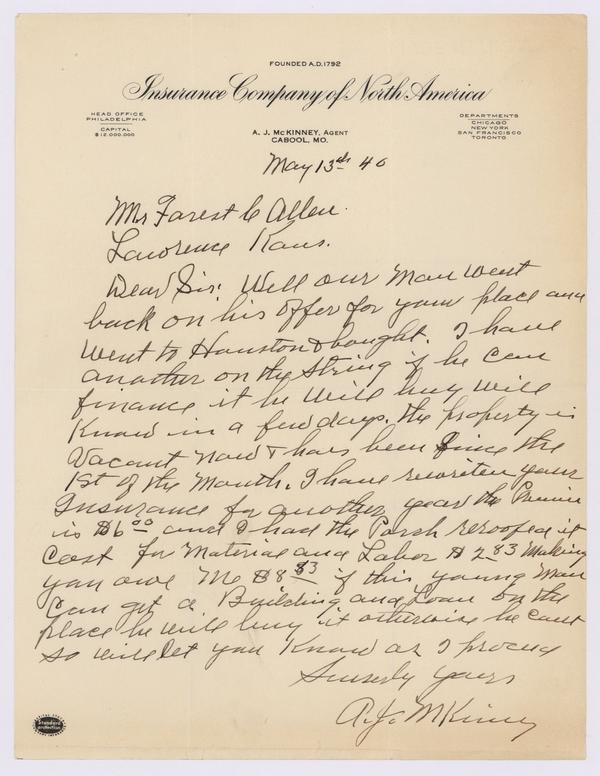 FOUNDED A.D. 1792
Insurance Company of North America
HEAD OFFICE
PHILADELPHIA
CAPITAL
$12,000,000
DEPARTMENTS
CHICAGO
NEW YORK
SAN FRANCISCO
TORONTO
A. J. McKINNEY, AGENT
CABOOL, MO.
May 13th 40
Mr Forest C Allen.
Lawrence Kans.
Dear Sir: Well our Man went
back on his offer for your place and
went to Houston & bought. I have
another on the String if he can
finance it he will buy will
Know in a few days. the property is
Vacant now & has been Since the
1st of the Month. I have rewriten your
Insurance for another year the Premium
is $6 00 and I had the Porch reroofed it
Cost for Material and Labor $2 83 Making
you owe Me $8 83 if this young Man
Can get a Building and Loan on the
place he will buy it otherwise he cant
so will let you Know as I proceed
Sincerly yours
A.J. McKinney
Standard
protection